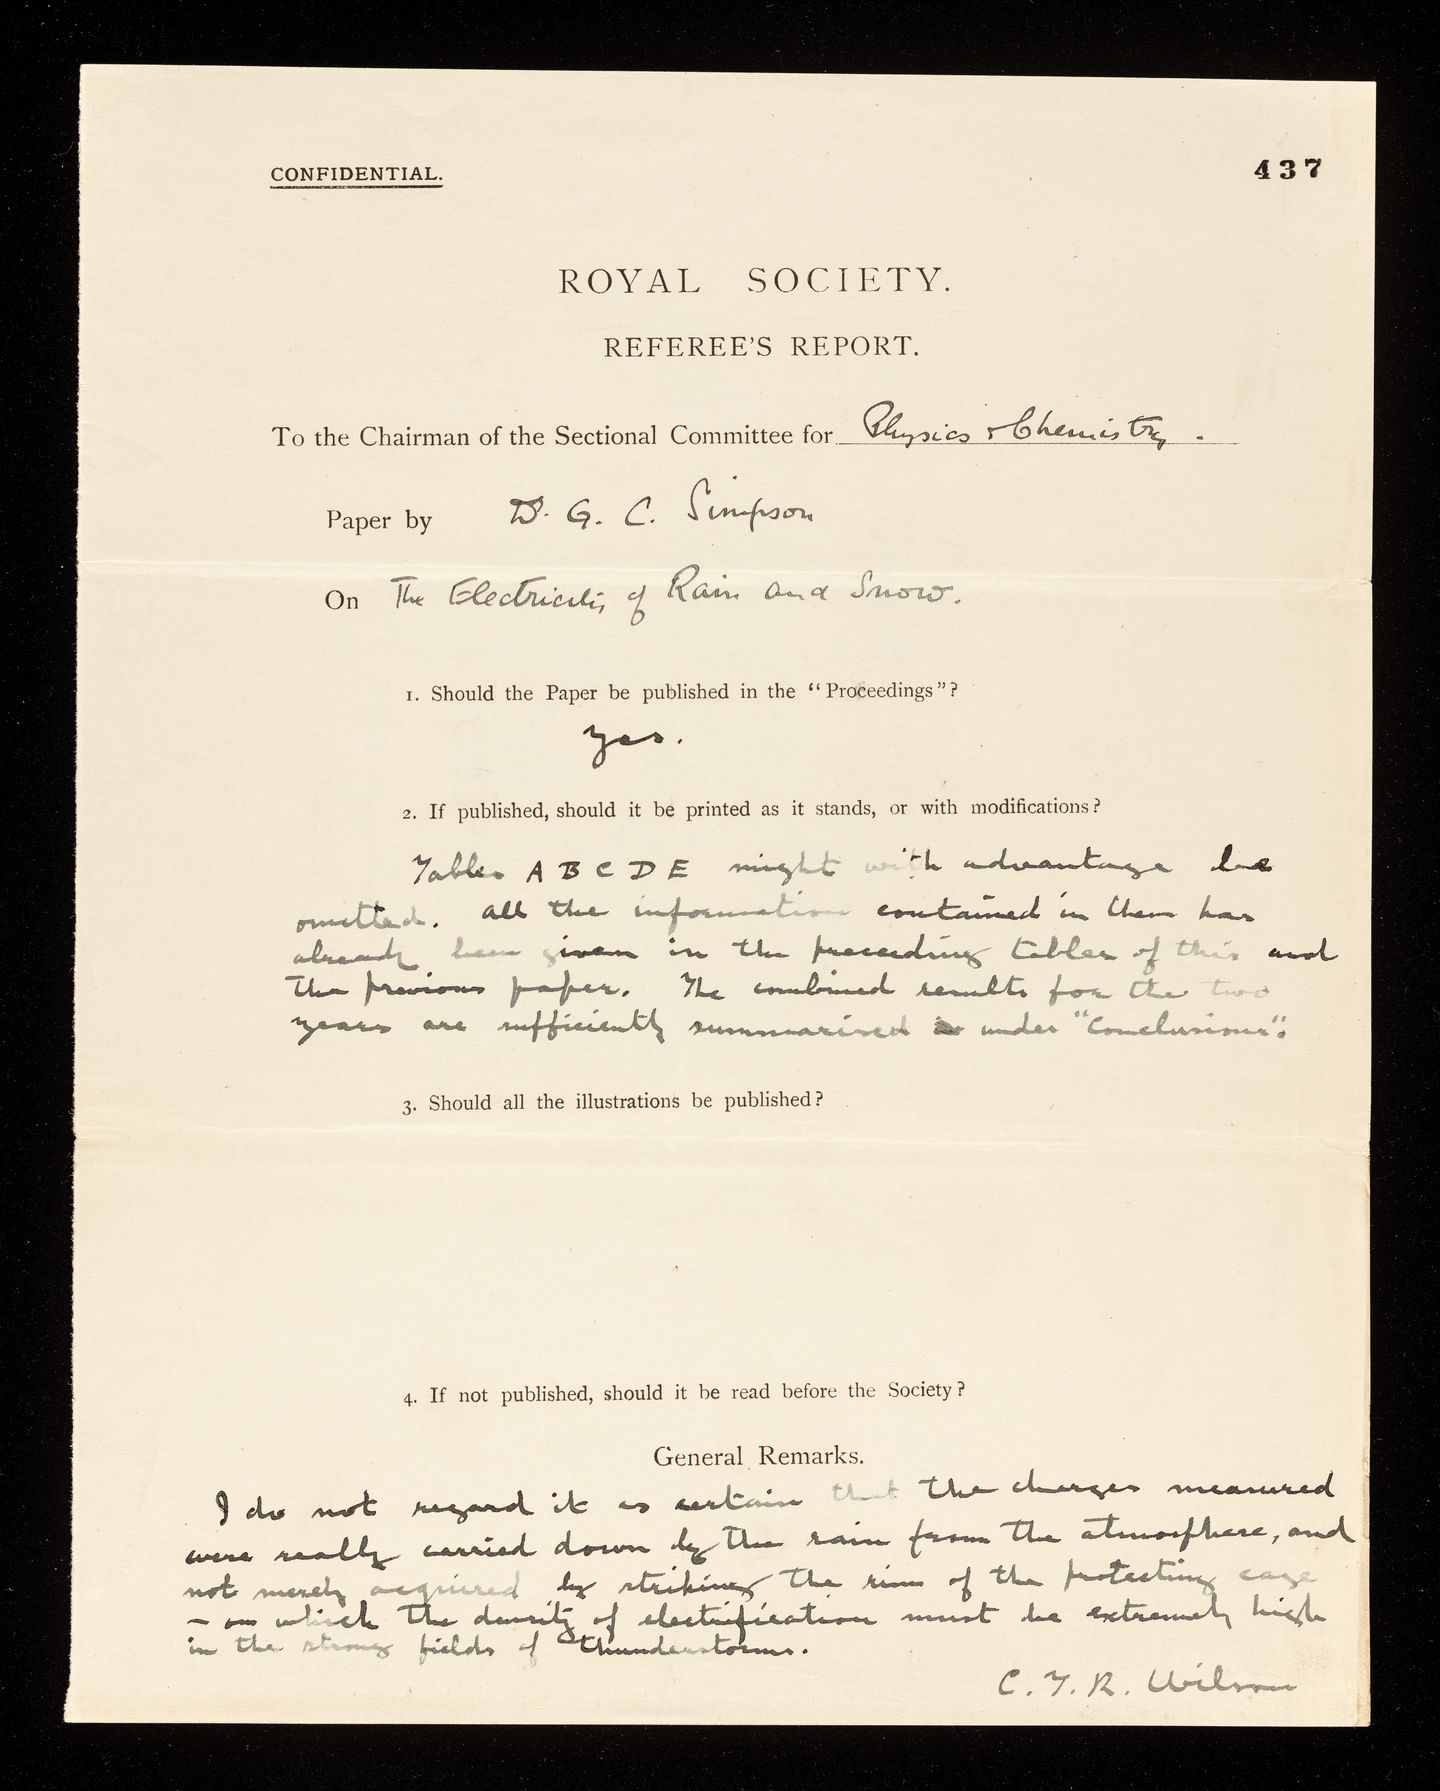 CONFIDENTIAL.
437
ROYAL SOCIETY.
REFEREE'S REPORT.
To the Chairman of the Sectional Committee for Physics & Chemistry.
Paper by Dr. G. C. Simpson
On The Electricity of Rain and Snow.
1. Should the Paper be published in the "Proceedings"?
Yes.
2. If published, should it be printed as it stands, or with modifications?
Tables A B C D E might with advantage be
omitted. All the information contained in them has
already been given in the preceding tables of this and
the previous paper. The combined results for the two
years are sufficiently summarised under "Conclusions".
3. Should all the illustrations be published?
4. If not published, should it be read before the Society?
General Remarks.
I do not regard it as certain that the charges measured
were really carried down by the rain from the atmosphere, and
not merely acquired by striking the rim of the protecting cage
– on which the density of electrification must be extremely high
in the strong fields of thunderstorms.
C. T. R. Wilson